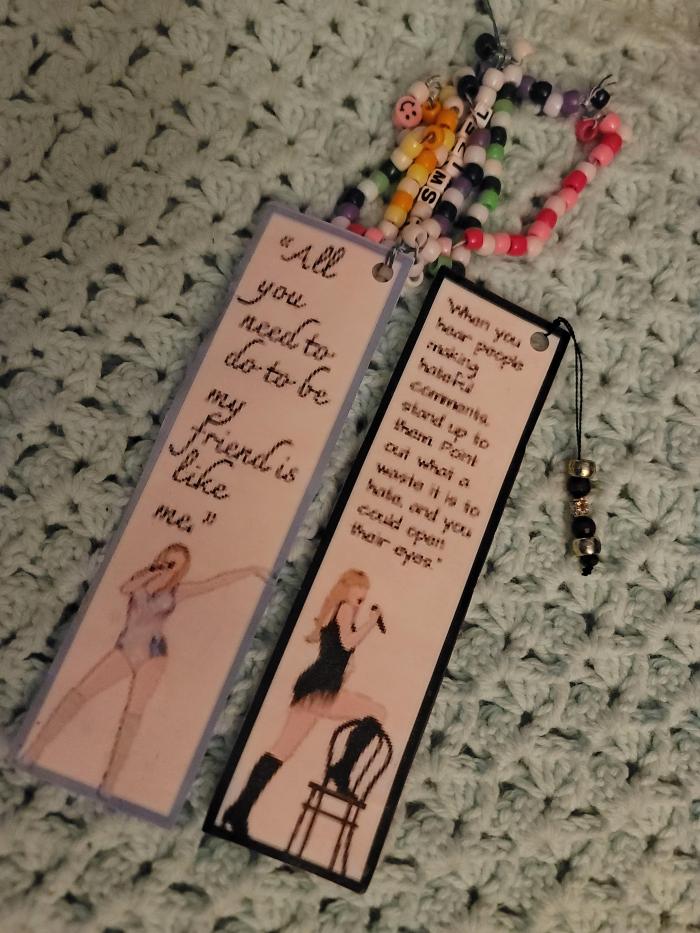 "All
you
need to
do to be
my
friend is
like
me."
"When you
hear people
making
hateful
comments,
stand up to
them. Point
out what a
waste it is to
hate, and you
could open
their eyes."
SW